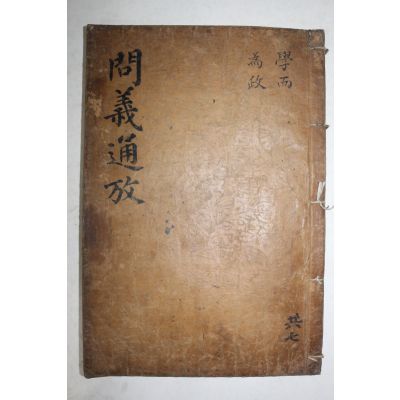 問義通攷
學而
為政
共七